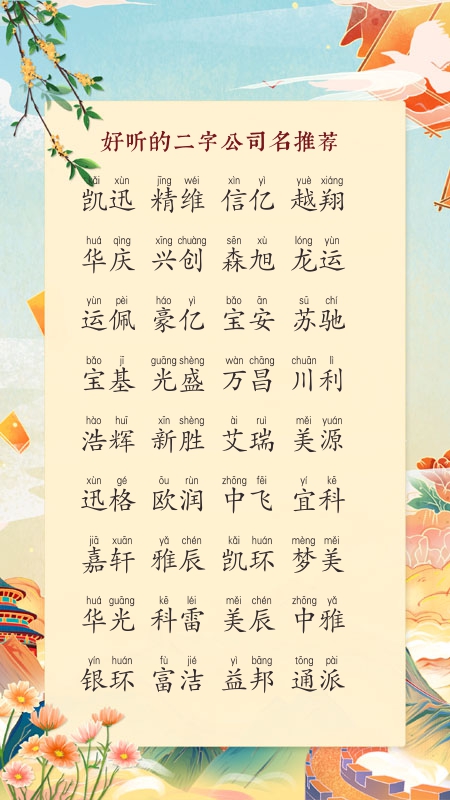 好听的二字公司名推荐
kǎi xùn jīng wéi xìn yì yuè xiáng
凯迅 精维 信亿 越翔
huá qìng xīng chuàng sēn xù lóng yùn
华庆 兴创 森旭 龙运
yùn pèi háo yì bǎo ān sū chí
运佩 豪亿 宝安 苏驰
bǎo jī guāng shèng wàn chāng chuān lì
宝基 光盛 万昌 川利
hào huī xīn shèng ài ruì měi yuán
浩辉 新胜 艾瑞 美源
xùn gé ōu rùn zhōng fēi yí kē
迅格 欧润 中飞 宜科
jiā xuān yǎ chén kǎi huán mèng měi
嘉轩 雅辰 凯环 梦美
huá guāng kē léi měi chén zhōng yǎ
华光 科雷 美辰 中雅
yín huán fù jié yì bāng tōng pài
银环 富洁 益邦 通派